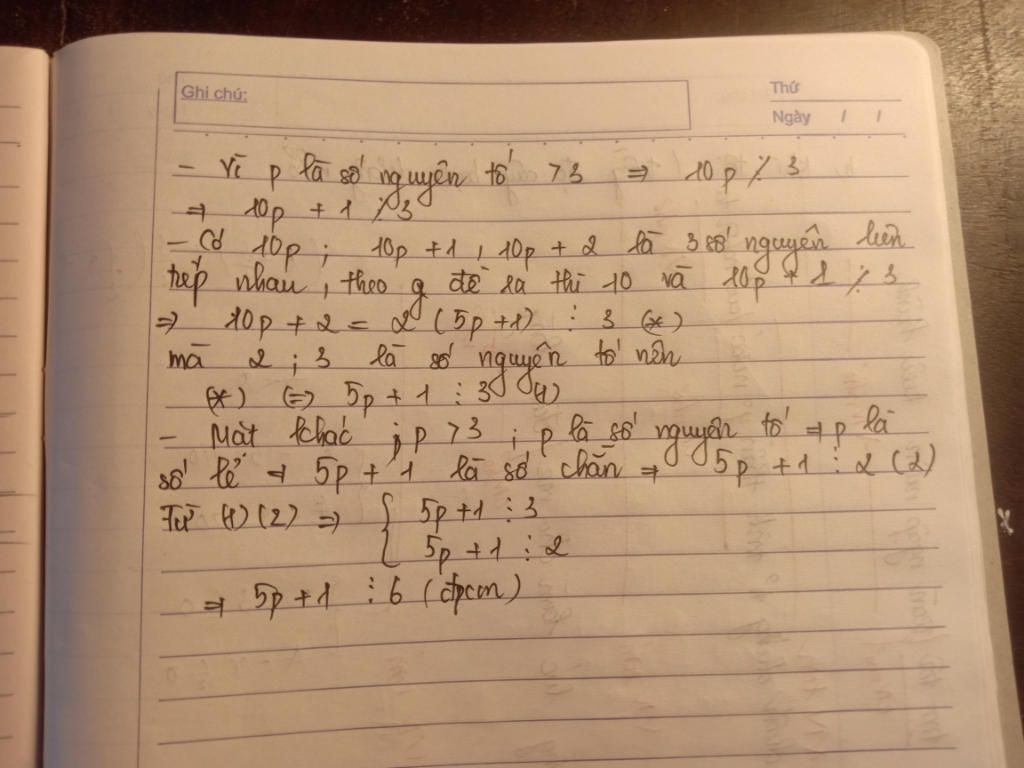 Ghi chú:
Thứ
Ngày / /
- Vì p là số nguyên tố > 3 ⇒ 10p ⋮̸ 3
⇒ 10p + 1 ⋮̸ 3
- Có 10p ; 10p + 1 , 10p + 2 là 3 số nguyên liên
tiếp nhau , theo g đề ra thì 10 và 10p + 1 ⋮̸ 3
⇒ 10p + 2 = 2 (5p + 1) ⋮ 3 (*)
mà 2 ; 3 là số nguyên tố nên
(*) (=) 5p + 1 ⋮ 3 (1)
- Mặt khác ; p > 3 ; p là số nguyên tố ⇒ p là
số lẻ ⇒ 5p + 1 là số chẵn ⇒ 5p + 1 ⋮ 2 (2)
Từ (1) (2) ⇒ { 5p + 1 ⋮ 3
5p + 1 ⋮ 2
⇒ 5p + 1 ⋮ 6 (đpcm)